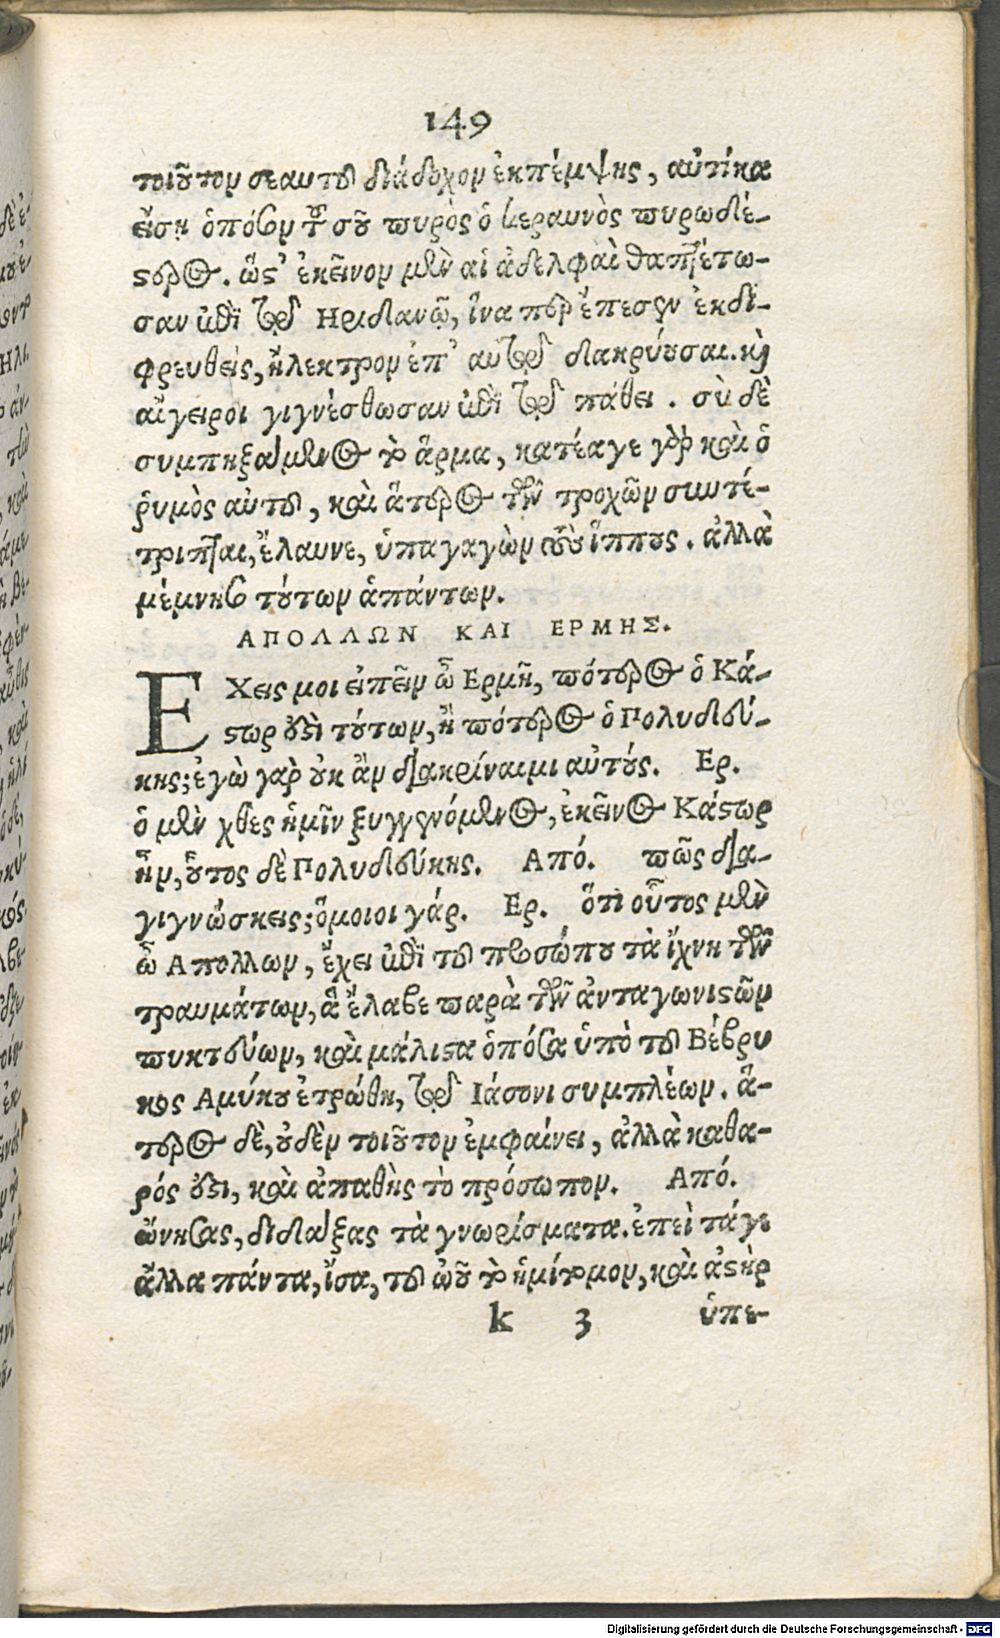 149
τοιοῦτον σεαυτοῦ διάδοχον ἐκπέμψῃς, αὐτίκα
εἴσῃ ὁπόσον τοῦ σοῦ πυρὸς ὁ κεραυνὸς πυρωδέ-
στερος. ὥς' ἐκεῖνον μὲν αἱ ἀδελφαὶ θαπτέτω-
σαν ἐπὶ τῷ Ηριδανῷ, ἵνα περ ἔπεσεν ἐκδι-
φρευθείς, ἤλεκτρον ἐπ' αὐτῷ δακρύουσαι. καὶ
αἴγειροι γιγνέσθωσαν ἐπὶ τῷ πάθει. σὺ δὲ
συμπηξάμενος τὸ ἅρμα, κατέαγε γὰρ καὶ ὁ
ῥυμὸς αὐτοῦ, καὶ ἅτερος τῶν τροχῶν συντέ-
τριπται, ἔλαυνε, ὑπαγαγὼν τοὺς ἵππους. ἀλλὰ
μέμνησο τούτων ἁπάντων.
ΑΠΟΛΛΩΝ ΚΑΙ ΕΡΜΗΣ.
ΕΧεις μοι εἰπεῖν ὦ Ερμῆ, πότερος ὁ Κά-
στωρ ἐστὶ τούτων, ἢ πότερος ὁ Πολυδεύ-
κης; ἐγὼ γὰρ οὐκ ἂν διακρίναιμι αὐτούς. Ερ.
ὁ μὲν χθὲς ἡμῖν ξυγγενόμενος, ἐκεῖνος Κάστωρ
ἦν, οὗτος δὲ Πολυδεύκης. Από. πῶς δια-
γιγνώσκεις; ὅμοιοι γάρ. Ερ. ὅτι οὗτος μὲν
ὦ Απολλων, ἔχει ἐπὶ τοῦ προσώπου τὰ ἴχνη τῶν
τραυμάτων, ἃ ἔλαβε παρὰ τῶν ἀνταγωνιστῶν
πυκτεύων, καὶ μάλιστα ὁπόσα ὑπὸ τοῦ Βέβρυ
κος Αμύκου ἐτρώθη, τῷ Ιάσονι συμπλέων. ἅ-
τερος δὲ, οὐδὲν τοιοῦτον ἐμφαίνει, ἀλλὰ καθα-
ρός ἐστι, καὶ ἀπαθὴς τὸ πρόσωπον. Από.
ὤνησας, διδάξας τὰ γνωρίσματα. ἐπεὶ τά γε
ἄλλα πάντα, ἴσα, τοῦ ὠοῦ τὸ ἡμίτομον, καὶ ἀστὴρ
k 3 ὑπε-
Digitalisierung gefördert durch die Deutsche Forschungsgemeinschaft - DFG